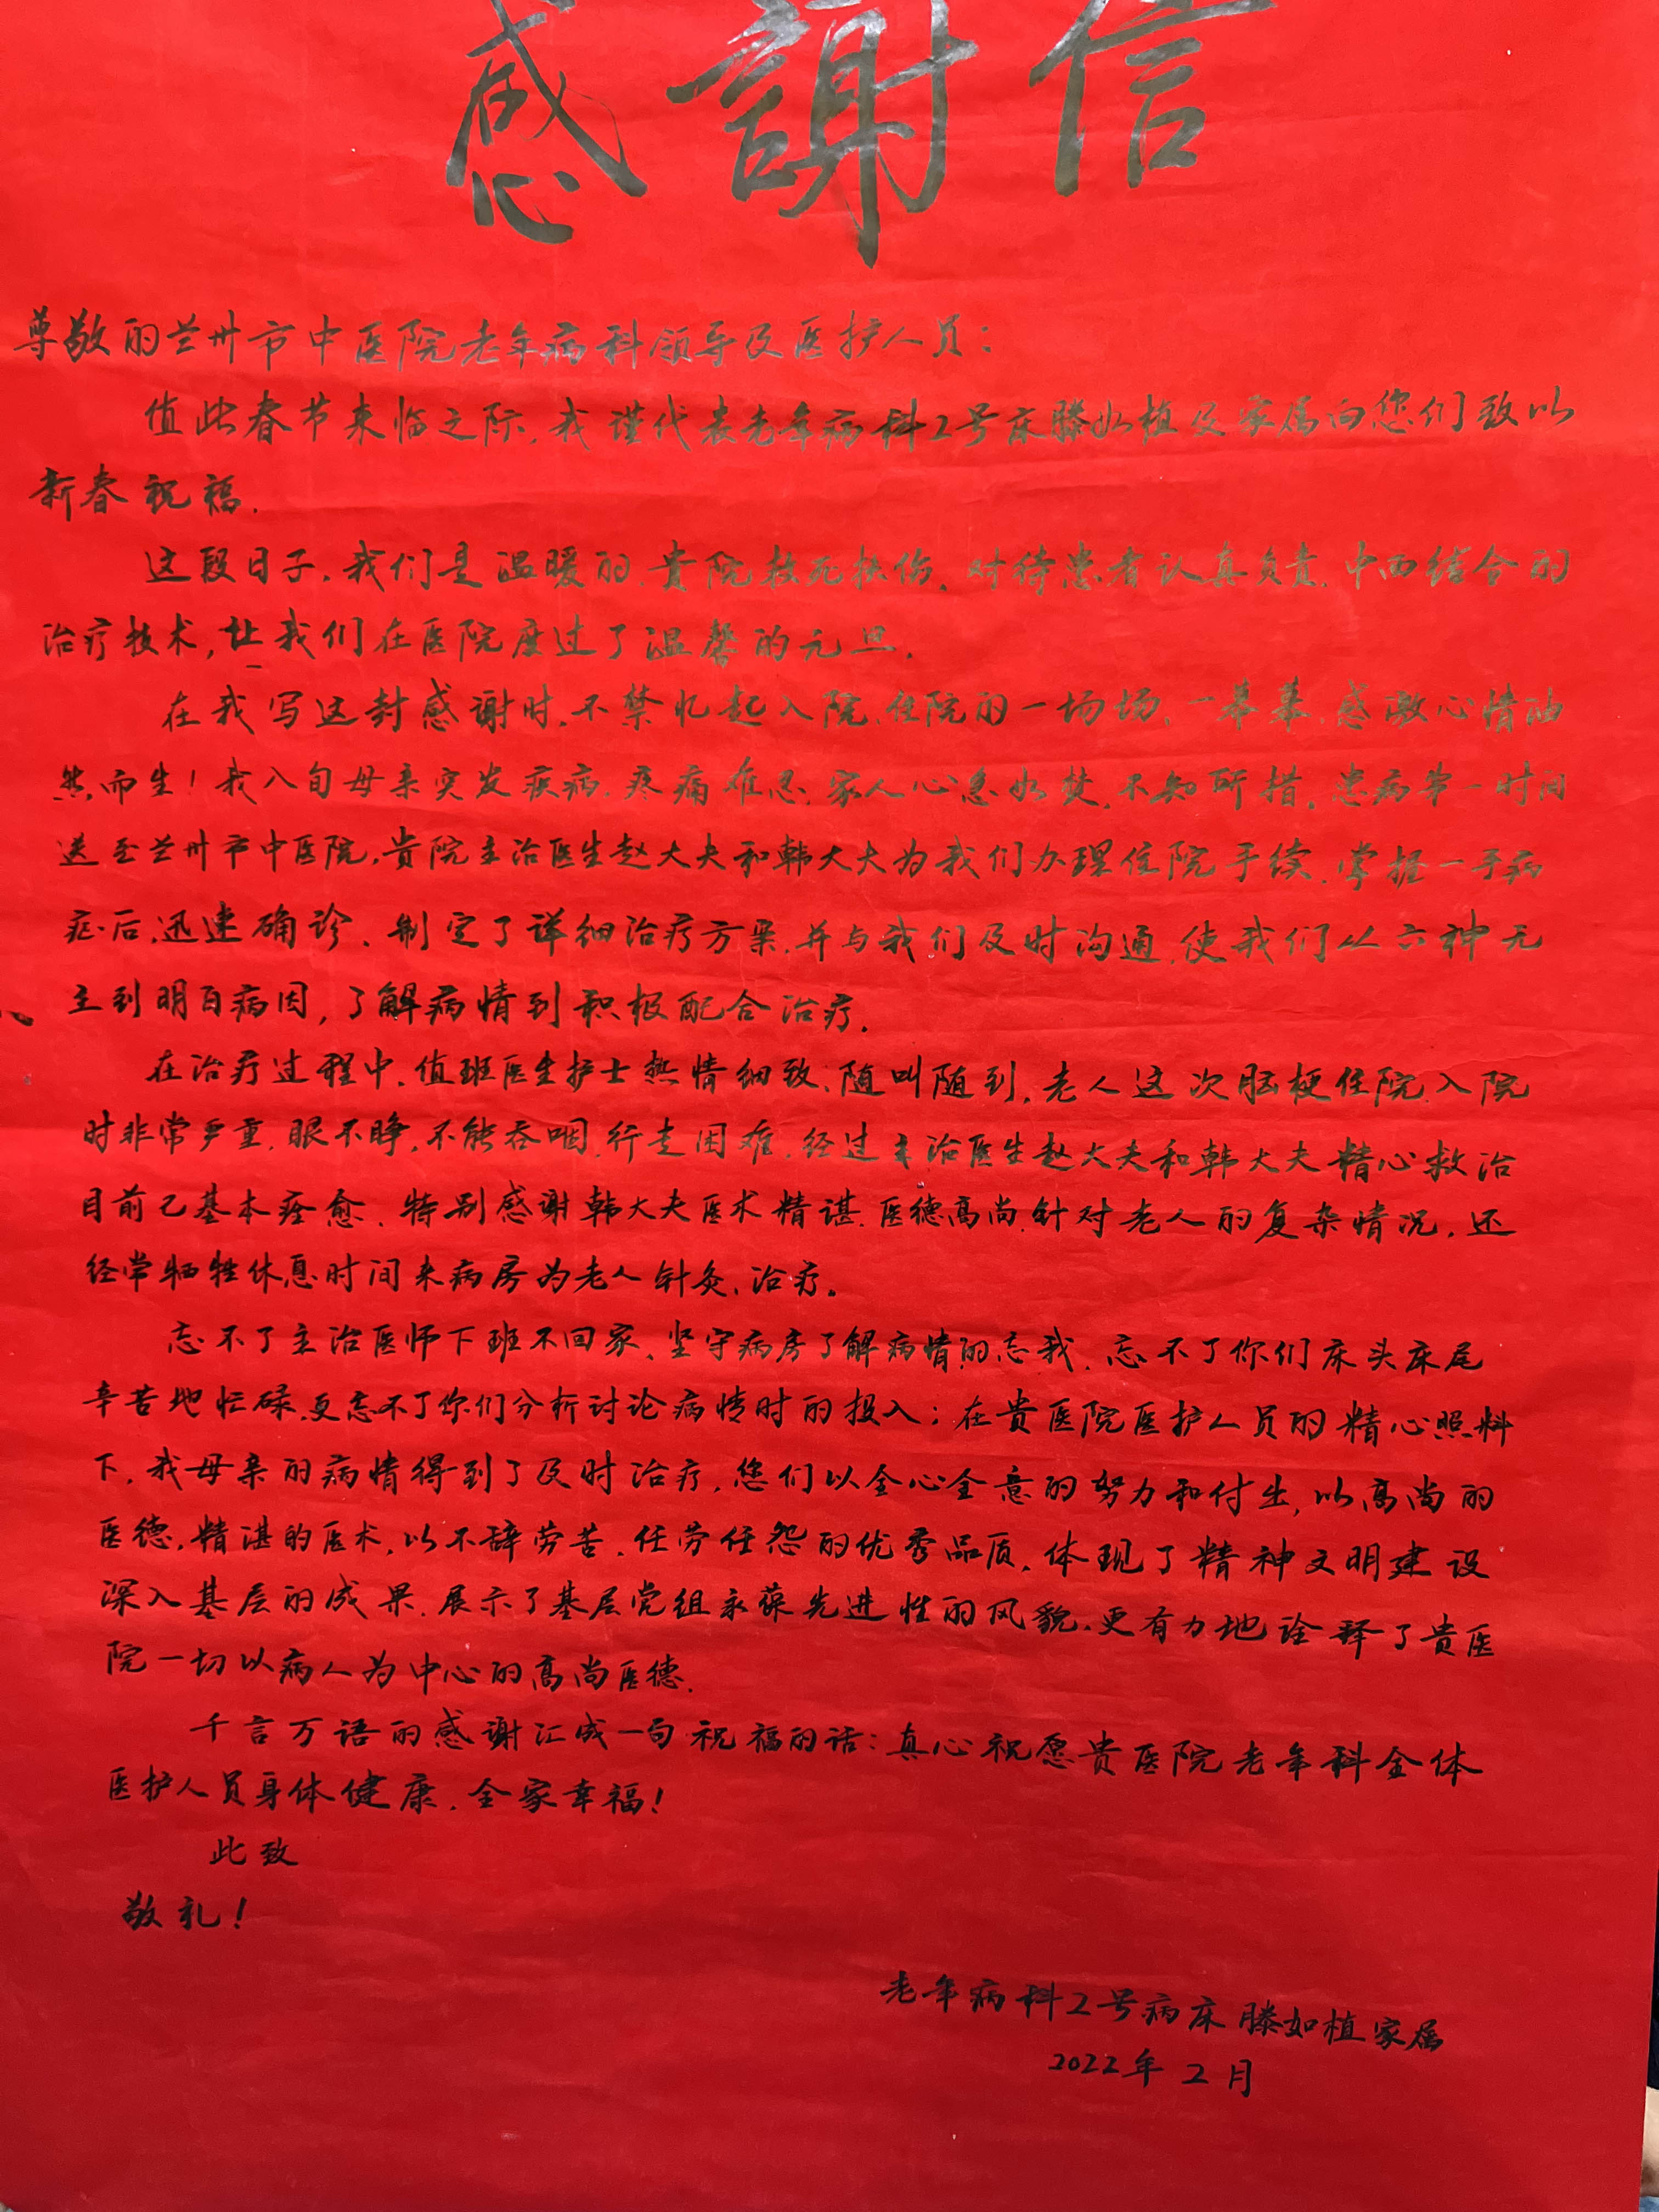 感謝信
尊敬的兰州市中医院老年病科领导及医护人员：
值此春节来临之际，我谨代表老年病科2号床滕如植及家属向您们致以
新春祝福。
这段日子，我们是温暖的，贵院救死扶伤，对待患者认真负责，中西结合的
治疗技术，让我们在医院度过了温馨的元旦。
在我写这封感谢时，不禁忆起入院、住院的一场场，一幕幕，感激心情油
然而生！我八旬母亲突发疾病，疼痛难忍，家人心急如焚，不知所措。患病第一时间
送至兰州市中医院，贵院主治医生赵大夫和韩大夫为我们办理住院手续，掌握一手病
症后，迅速确诊、制定了详细治疗方案，并与我们及时沟通，使我们从六神无
主到明白病因，了解病情到积极配合治疗。
在治疗过程中，值班医生护士热情细致、随叫随到，老人这次脑梗住院，入院
时非常严重，眼不睁，不能吞咽，行走困难，经过主治医生赵大夫和韩大夫精心救治
目前已基本痊愈，特别感谢韩大夫医术精谌，医德高尚，针对老人的复杂情况，还
经常牺牲休息时间来病房为老人针灸、治疗。
忘不了主治医师下班不回家、坚守病房了解病情的忘我，忘不了你们床头床尾
辛苦地忙碌，更忘不了你们分析讨论病情时的投入；在贵医院医护人员的精心照料
下，我母亲的病情得到了及时治疗，您们以全心全意的努力和付出，以高尚的
医德，精湛的医术，以不辞劳苦，任劳任怨的优秀品质，体现了精神文明建设
深入基层的成果，展示了基层党组永葆先进性的风貌，更有力地诠释了贵医
院一切以病人为中心的高尚医德。
千言万语的感谢汇成一句祝福的话：真心祝愿贵医院老年科全体
医护人员身体健康，全家幸福！
此致
敬礼！
老年病科2号病床滕如植家属
2022年2月